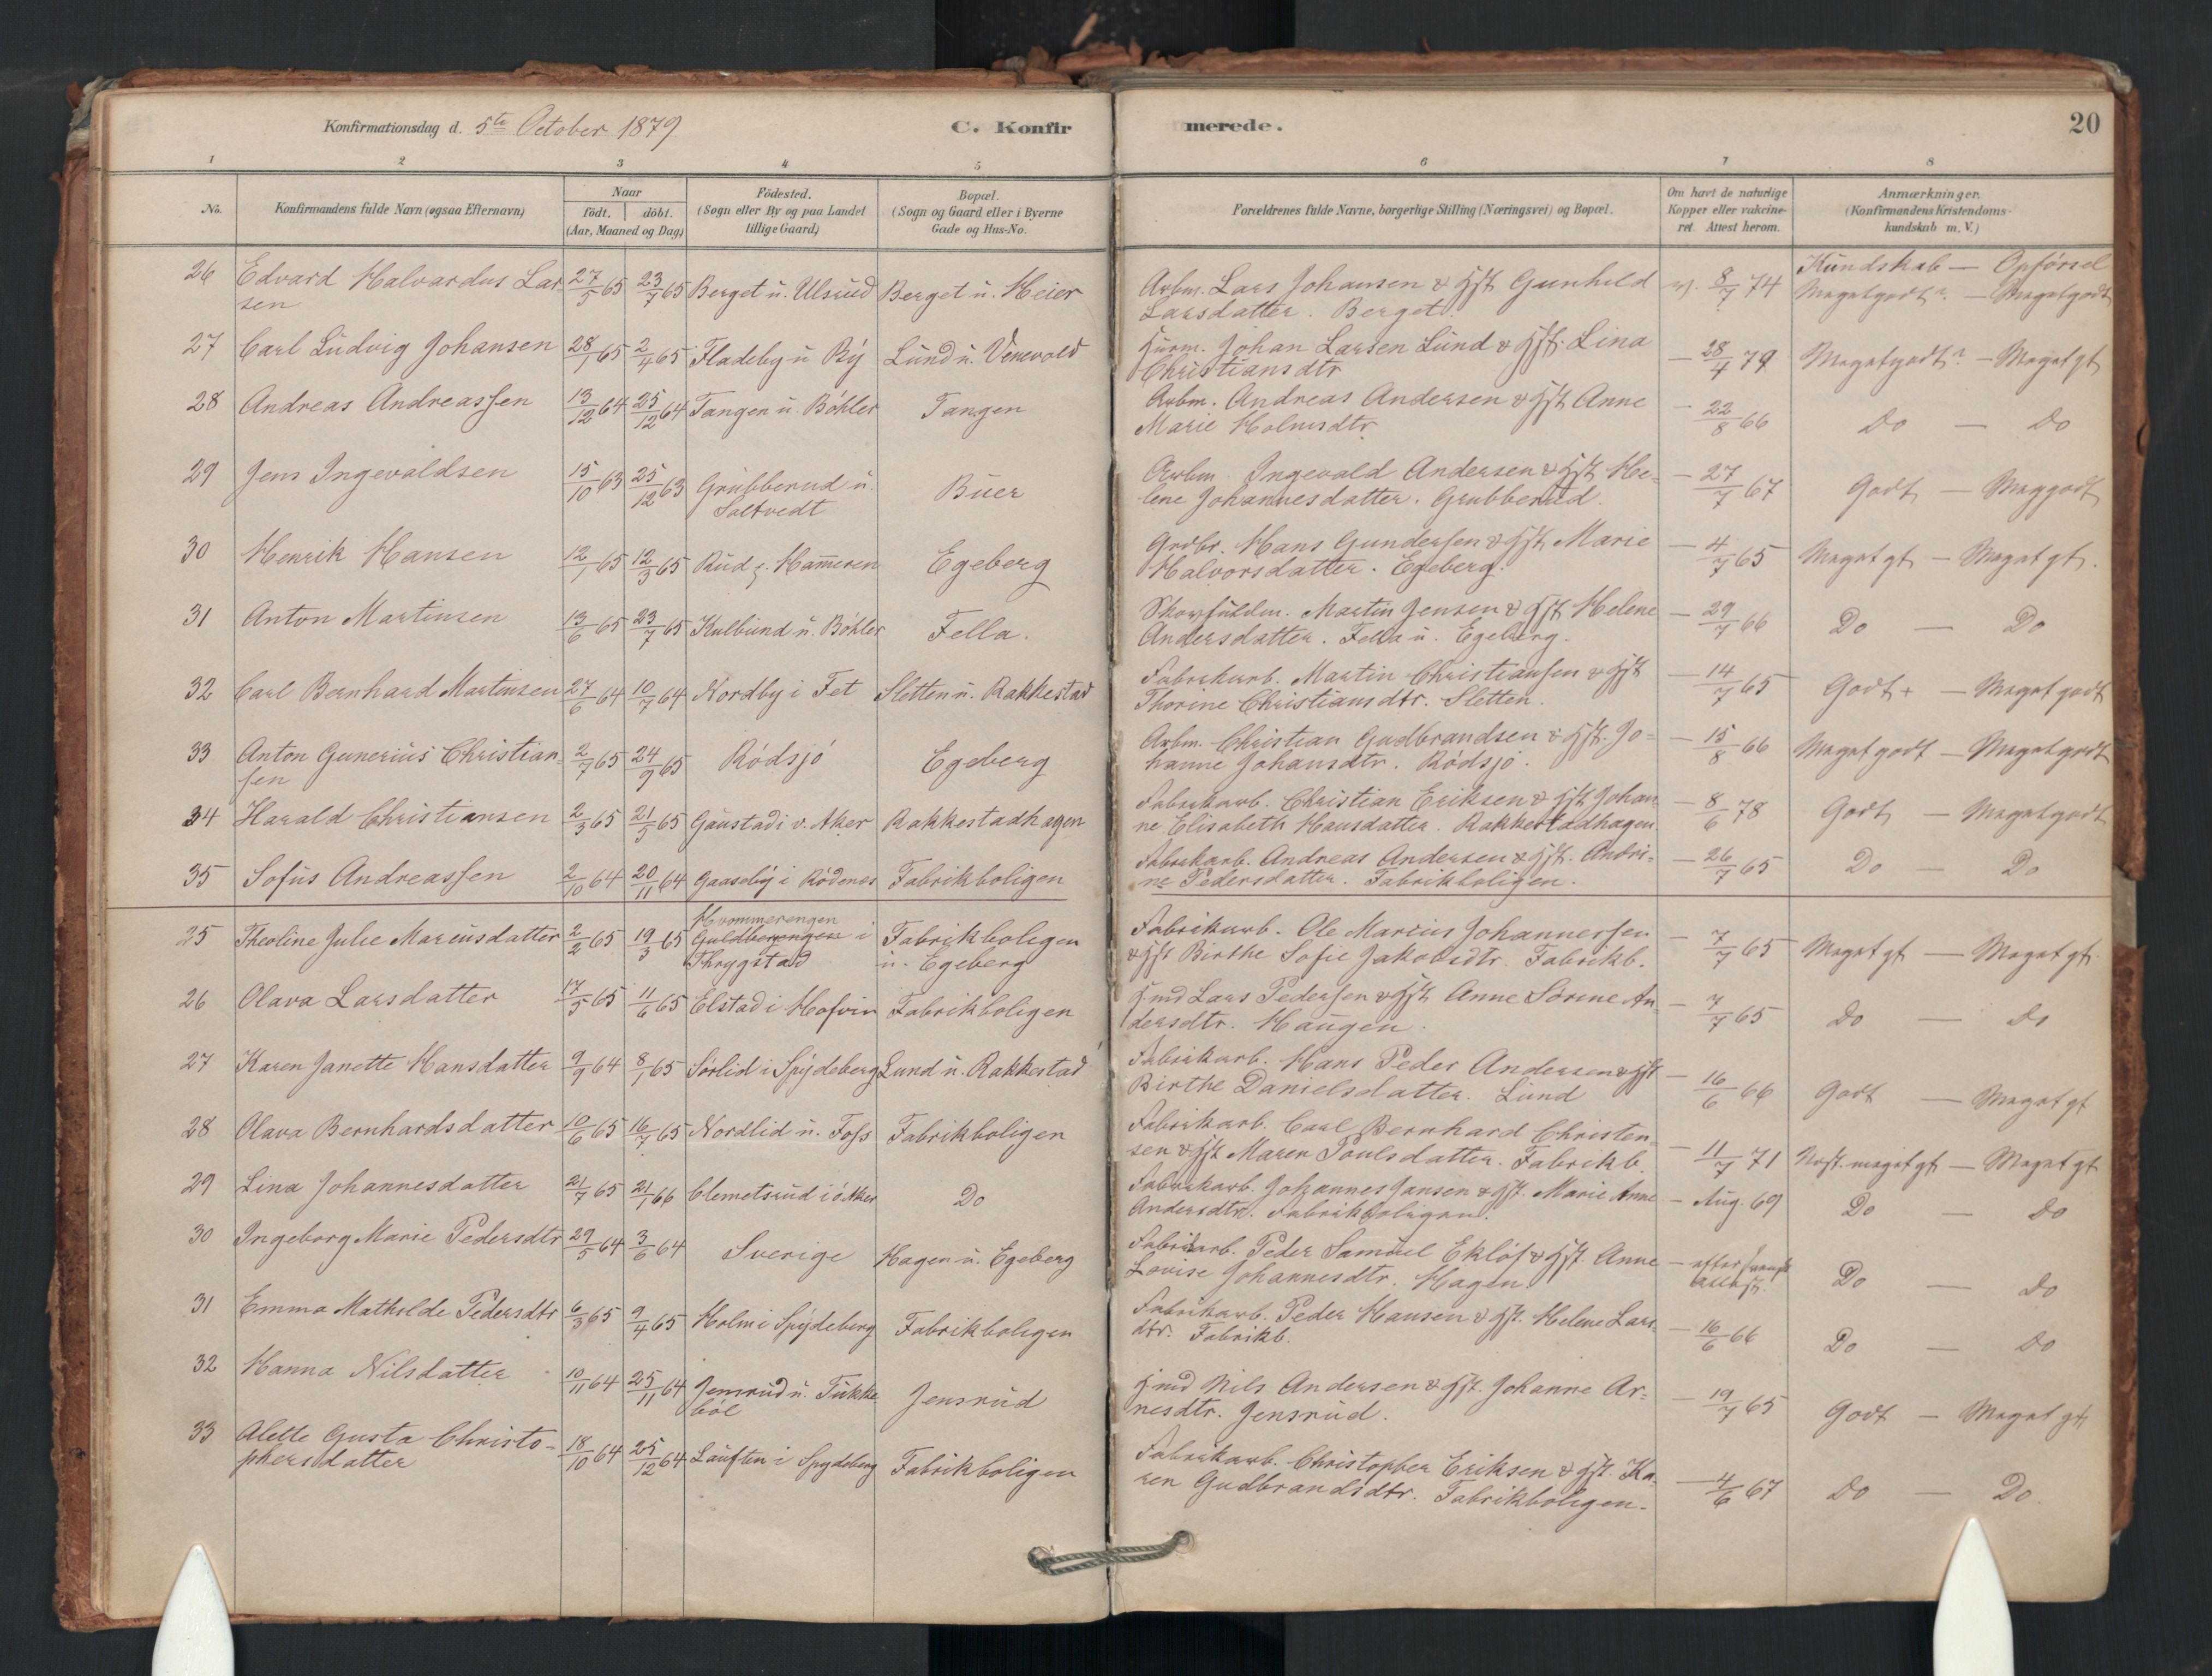 Konfirmationsdag d. 5te October 1879 C. Konfir merede. 20
1 2 3 4 5 6 7 8
No. Konfirmandens fulde Navn (ogsaa Efternavn) Naar født. døbt. (Aar, Maaned og Dag) Fødested. (Sogn eller By og paa Landet tillige Gaard) Bopæl. (Sogn og Gaard eller i Byerne Gade og Hus-No. Forældrenes fulde Navne, borgerlige Stilling (Næringsvei) og Bopæl. Om havt de naturlige Kopper eller vakcineret. Attest herom. Anmærkninger. (Konfirmandens Kristendomskundskab m. V.)
Kundskab — Opførsel
26 Edvard Halvardus Larsen 27/5 65 23/7 65 Berget u. Ulsrud Berget u. Meier Arbm. Lars Johansen & Hst Gunhild Larsdatter. Berget. v. 8/7 74 Megetgodt — Megetgodt
27 Carl Ludvig Johansen 28/1 65 2/4 65 Fladeby u By Lund u. Venevold Husm. Johan Larsen Lund & Hst. Lina Christiansdtr — 28/4 79 Megetgodt — Meget gt
28 Andreas Andreassen 13/12 64 25/12 64 Tangen u. Bøhler Tangen Arbm. Andreas Andersen & Hst Anne Marie Holmsdtr — 22/8 66 Do — Do
29 Jens Ingevaldsen 15/10 63 25/12 63 Grubberud u. Saltvedt Buer Arbm. Ingevald Andersen & Hst Helene Johannesdatter. Grubberud. — 27/7 67 Godt — Meggodt
30 Henrik Hansen 12/1 65 12/3 65 Rud u. Hameren Egeberg Grdbr. Hans Gundersen & Hst, Marie Halvorsdatter. Egeberg. — 4/7 65 Meget gt — Meget gt.
31 Anton Martinsen 13/6 65 23/7 65 Kulbund u. Bøhler Fella. Martin Jensen & Hst Helene Andersdatter. Fella u. Egeberg. — 29/7 66 Do — Do
32 Carl Bernhard Martinsen 27/6 64 10/7 64 Nordby i Fet Sletten u. Rakkestad Fabrikarb. Martin Christiansen & Hst Thorine Christiansdtr. Sletten. — 14/7 65 Godt + — Meget godt
33 Anton Gunerius Christiansen 2/7 65 24/9 65 Rødsjø Egeberg Arbm. Christian Gudbrandsen & Hst. Johanne Johansdtr. Rødsjø. — 15/8 66 Meget godt — Megetgodt
34 Harald Christiansen 2/3 65 21/5 65 Gaustad i v. Aker Rakkestadhagen Fabrikarb. Christian Eriksen & Hst Johanne Elisabeth Hansdatter. Rakkestadhagen. — 8/6 78 Godt — Megetgodt
35 Sofus Andreassen 2/10 64 20/11 64 Gaaseby i Rødenes Fabrikboligen Fabrikarb. Andreas Andersen & Hst. Andrine Pedersdatter. Fabrikboligen. — 26/7 65 Do — Do
25 Theoline Julie Mariusdatter 2/2 65 19/3 65 Hvommerengen Guldberengen i Thrygstad Fabrikboligen u. Egeberg Fabrikarb. Ole Marius Johannessen & Hst Birthe Sofie Jakobsdtr. Fabrikb. — 7/7 65 Meget gt — Meget gt.
26 Olava Larsdatter 17/5 65 11/6 65 Elstad i Hofvin Fabrikboligen Hmd Lars Pedersen & Hst Anne Sørine Andersdtr. Haugen. — 7/7 65 Do — Do
27 Karen Janette Hansdatter 9/9 64 8/1 65 Sørlid i Spydeberg Lund u. Rakkestad Fabrikarb. Hans Peder Andersen & Hst Birthe Danielsdatter. Lund — 16/6 66 Godt — Meget gt
28 Olava Bernhardsdatter 10/6 65 16/7 65 Nordlid u. Foss Fabrikboligen Fabrikarb. Carl Bernhard Christensen & Hst Maren Poulsdatter. Fabrikb. — 11/7 71 Næst. meget gt — Meget gt
29 Lina Johannesdatter 21/7 65 21/1 66 Clemetsrud i ø Aker Do Fabrikarb. Johannes Jansen & Hst. Marie Anne Andersdtr. Fabrikboligen. — Aug. 69 Do — Do
30 Ingeborg Marie Pedersdtr 29/5 64 3/6 64 Sverige Hagen u. Egeberg Fabrikarb. Peder Samuel Ekløf & Hst. Anne Lovise Johannesdtr. Hagen — efter svensk Attest. Do — Do
31 Emma Mathilde Pedersdtr 6/3 65 9/4 65 Holm i Spydeberg Fabrikboligen Fabrikarb. Peder Hansen & Hst. Helene Larsdtr. Fabrikb. — 16/6 66 Do — Do
32 Hanna Nilsdatter 10/11 64 25/11 64 Jensrud u. Tukkebøl Jensrud Hmd Nils Andersen & Hst. Johanne Arnesdtr. Jensrud. — 19/7 65 Godt — Meget gt,
33 Alette Gusta Christophersdatter 18/10 64 25/12 64 Lauften i Spydeberg Fabrikboligen Fabrikarb. Christopher Eriksen & Hst. Karen Gudbrandsdtr. Fabrikboligen. — 4/6 67 Do — Do.